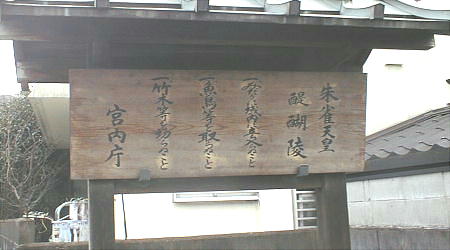 朱雀天皇
醍醐陵
一みだりに域内に立入らぬこと
一魚鳥等を取らぬこと
一竹木等を切らぬこと
宮内庁